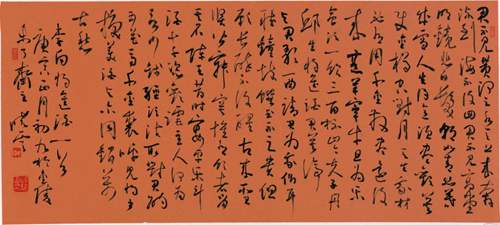 君不见黄河之水天上来奔
流到海不复回君不见高堂
明镜悲白发朝如青丝暮
成雪人生得意须尽欢莫
使金樽空对月天生我材
必有用千金散尽还复
来烹羊宰牛且为乐
会须一饮三百杯岑夫子丹
丘生将进酒君莫停
与君歌一曲请君为我侧耳
听钟鼓馔玉不足贵但
愿长醉不复醒古来圣
贤皆寂寞惟有饮者留其
名陈王昔时宴平乐斗
酒十千恣欢谑主人何为
言少钱径须沽取对君酌
五花马千金裘呼儿将出
换美酒与尔同销万
古愁
李白将进酒一首
庚寅正月初九於金陵